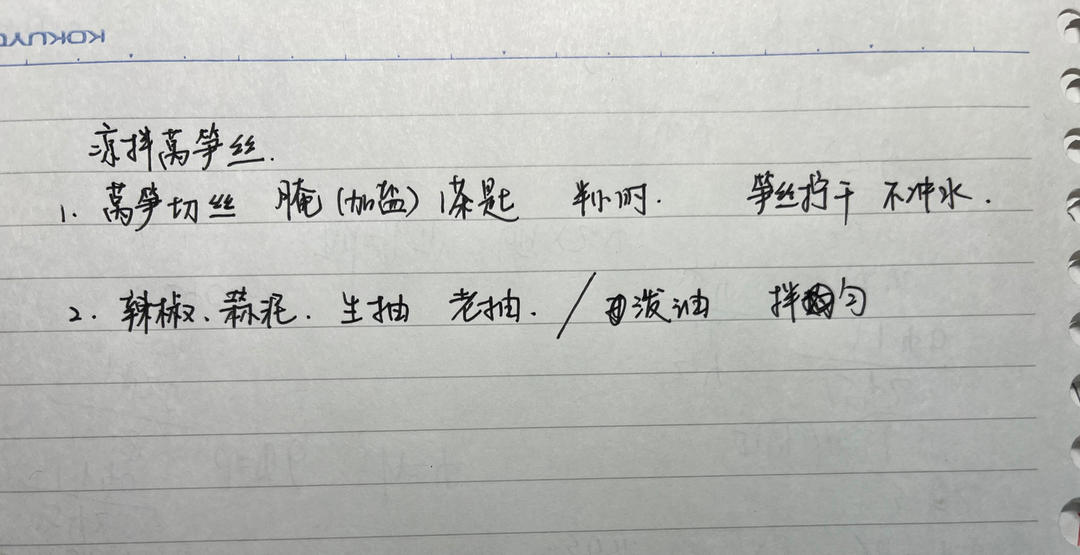 KOKUYO
凉拌莴笋丝.
1. 莴笋切丝 腌(加盐)1茶匙 半小时. 笋丝拧干 不冲水.
2. 辣椒、蒜泥. 生抽 老抽. / 泼油 拌匀